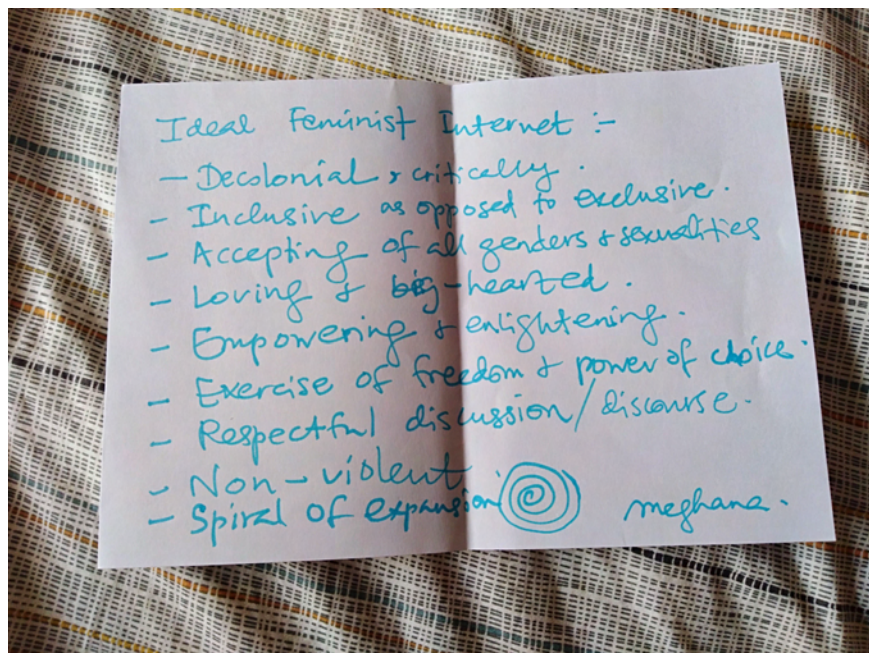 Ideal Feminist Internet :-
- Decolonial & critically.
- Inclusive as opposed to exclusive.
- Accepting of all genders & sexualities
- Loving & big-hearted.
- Empowering & enlightening.
- Exercise of freedom & power of choice.
- Respectful discussion/discourse.
- Non-violent.
- Spiral of expansion
meghana.